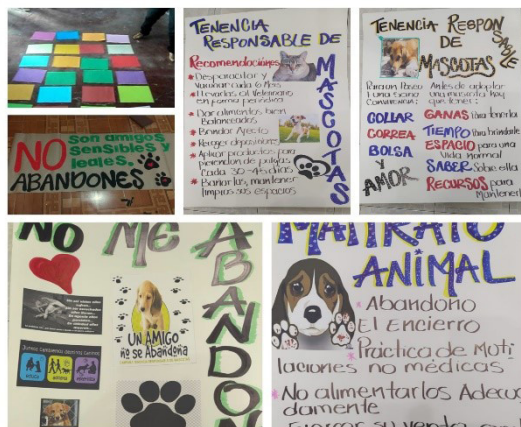 TENENCIA
RESPONSABLE DE
MASCOTAS
Recomendaciones:
* Desparacitar y
Vacunar cada 6 Meses
* Llevarlas al Veterinario
en forma periódica
* Dar alimentos bien
Balanceados
* Brindar Afecto
* Recoger deposiciones
* Aplicar productos para
prevención de pulgas
Cada 30-45 días
* Bañarlos, mantener
limpios sus espacios
TENENCIA RESPONSABLE
DE
MASCOTAS
Para un Paseo
y una Sana
Convivencia:
COLLAR
CORREA
BOLSA
Y
AMOR
Antes de adoptar
una mascota hay
que tener:
GANAS para tenerla
TIEMPO para brindarle
ESPACIO para una
Vida normal
SABER Sobre ella
RECURSOS para
Mantenerla
NO Son amigos
sensibles y
leales.
ABANDONES
NO ME ABANDON
UN AMIGO
no se Abandona
MALTRATO
ANIMAL
* Abandono
El Encierro
* Práctica de Muti
laciones no médicas
* No alimentarlos Adecua
damente